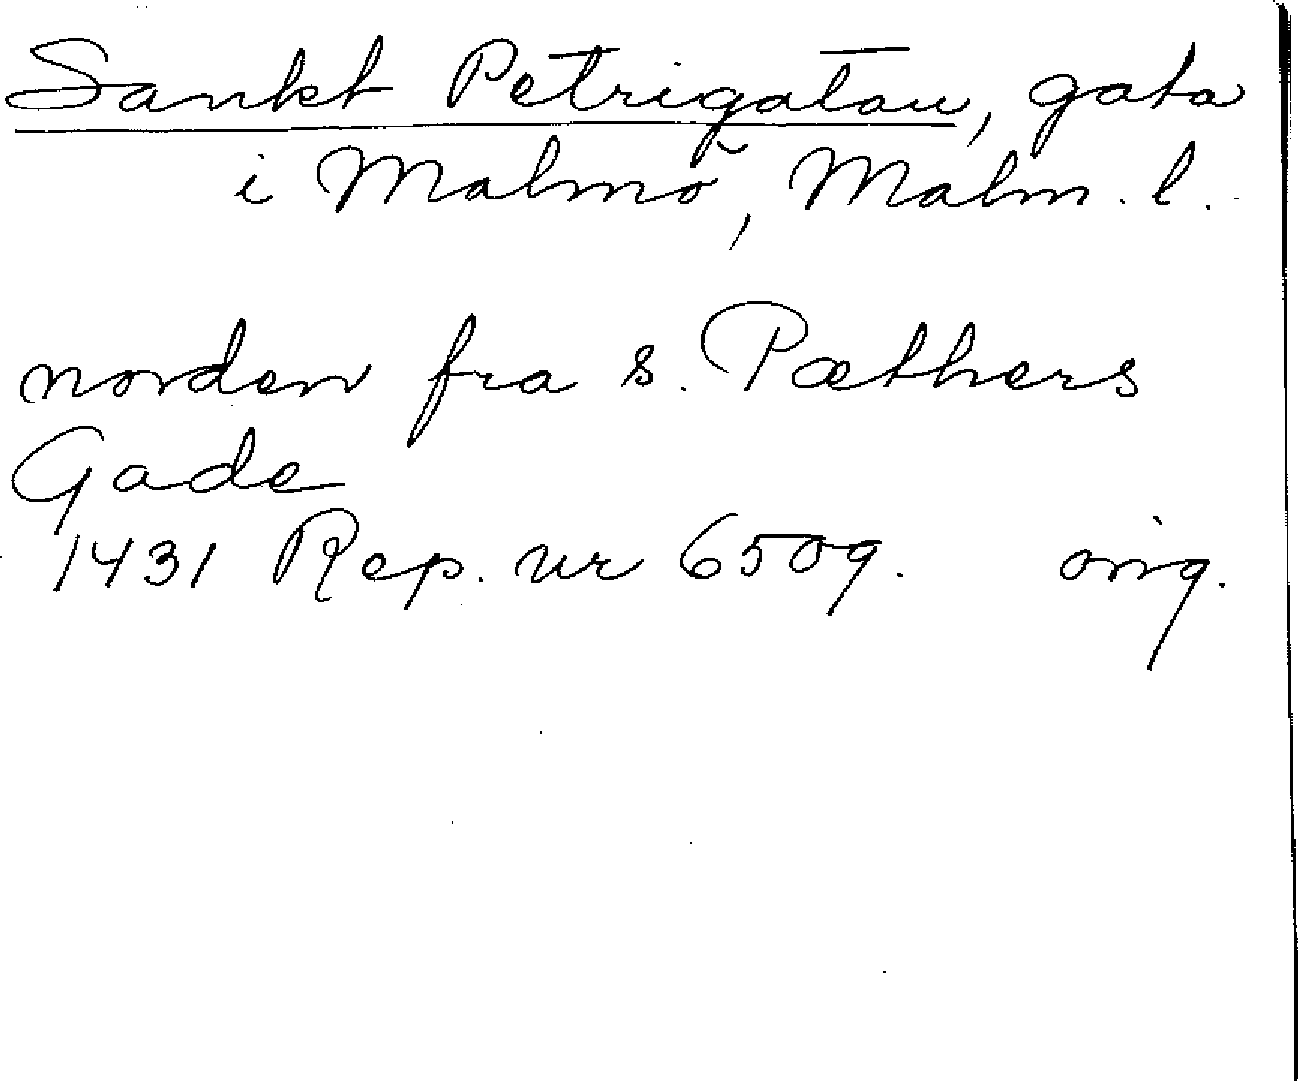 Sankt Petrigatan, gata
i Malmö, Malm. l.
norden fra s. Pæthers
Gade
1431 Rep. nr 6509. orig.